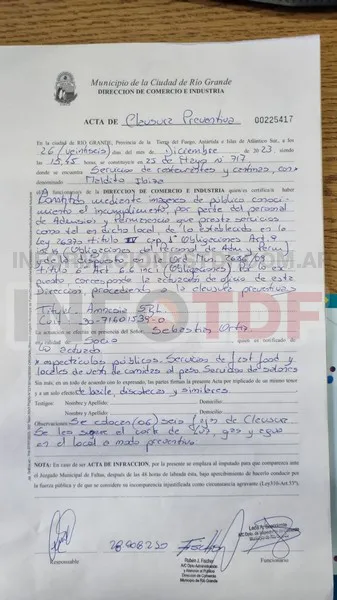 Municipio de la Ciudad de Río Grande
DIRECCION DE COMERCIO E INDUSTRIA
ACTA DE Clausura Preventiva 00225417
En la ciudad de RIO GRANDE, Provincia de la Tierra del Fuego, Antártida e Islas de Atlántico Sur, a los
26 (veintiseis) días del mes de Diciembre de 20 23 siendo
las 15,45 horas se constituyó en 25 de Mayo N° 717
donde se encuentra Servicio de restaurantes y cantinas, con
denominado Maldita Ibiza
el/los funcionarios de la DIRECCION DE COMERCIO E INDUSTRIA quien/es certifica/n haber
Constatado mediante imagenes de publico conoci-
miento el incumplimiento, por parte del personal
de Admision y Permanencia que presta servicios
como tal en dicho local, de lo establecido en la
ley 26370 titulo IV cap. I Obligaciones Art. 9
titulo 6 Art. 6.6 inc. I (Obligaciones). Por lo ex-
puesto corresponde la actuacion de oficio de esta
Direccion, procediendo a la clausura preventiva
Titular: Amnesia SRL
30-71601534-0
Sebastian Orta
en calidad de Socio quien es notificado de
lo actuado
* espectáculos públicos. Servicios de fast food y
locales de venta de comidas al paso Servicios de salones
Sin más, en un todo de acuerdo con lo expresado, las partes firman la presente Acta por replicado de un mismo tenor
y a un solo efecto de baile, discotecas y similares
Testigos: Nombre y Apellido: Domicilio:
Nombre y Apellido: Domicilio:
Observaciones: Se colocan (06) seis fajas de Clausura
Se les sugiere el corte de luz, gas y agua
en el local a modo preventivo.
NOTA: En caso de ser ACTA DE INFRACCION, por la presente se emplaza al imputado para que comparezca ante
el Juzgado Municipal de Faltas, después de las 48 horas de labrada ésta, bajo apercibimiento de hacerlo conducir por
la fuerza pública y de que se considere su incomparencia injustificada como circunstancia agravante (Ley
28908230
Responsable
Rubén J. Fischer
Dirección de Comercio
Municipio de Río Grande
Funcionario
INFOTDF